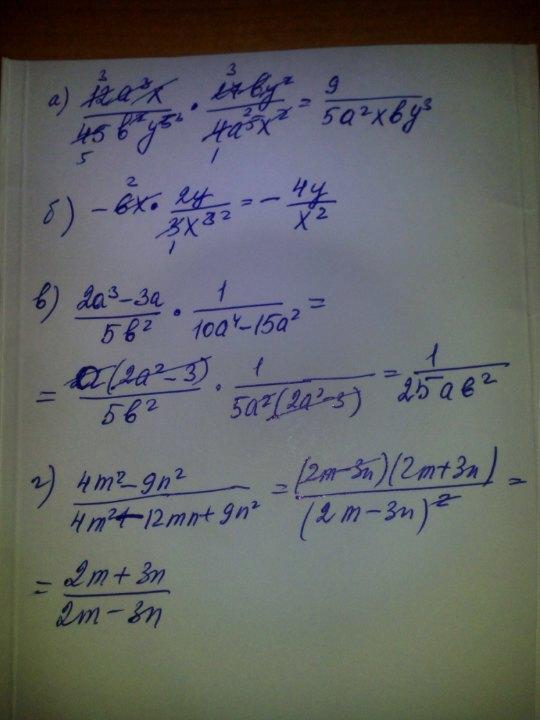 а) 12a³x / 45b²y⁵ · 27by² / 4a⁵x² = 9 / 5a²xby³
б) -6x · 2y / 3x³ = - 4y / x²
в) 2a³-3a / 5b² · 1 / 10a⁴-15a² =
= a(2a²-3) / 5b² · 1 / 5a²(2a²-3) = 1 / 25ab²
г) 4m²-9n² / 4m²-12mn+9n² = (2m-3n)(2m+3n) / (2m-3n)² =
= 2m+3n / 2m-3n